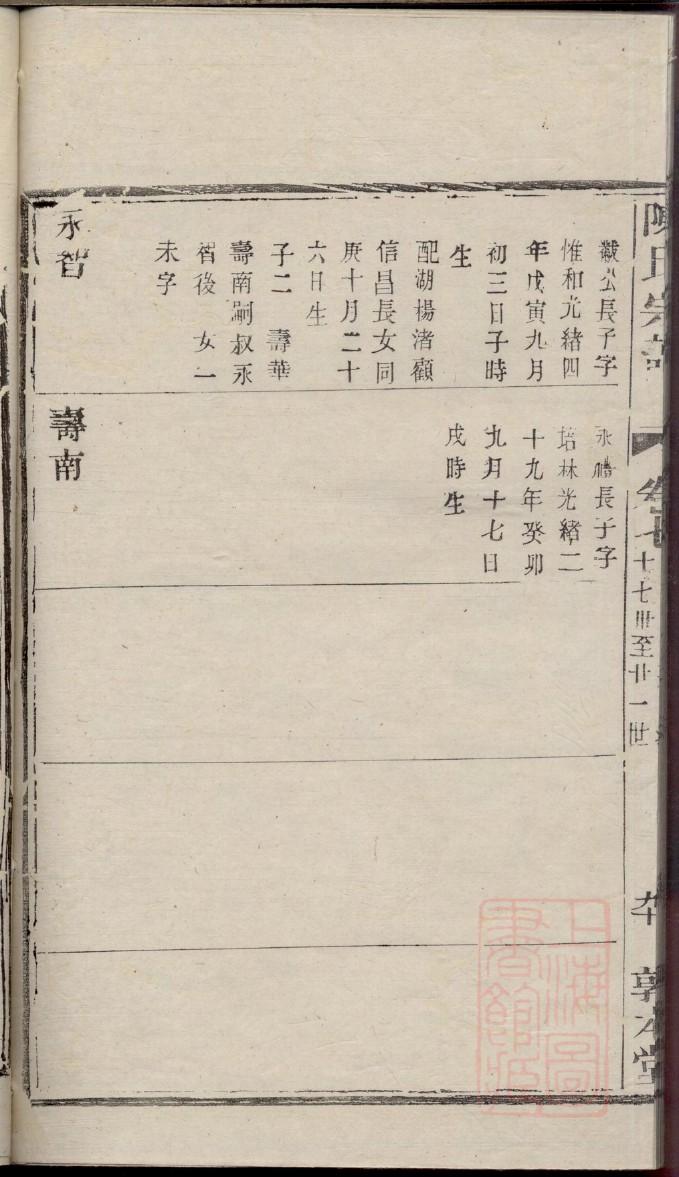 陳氏宗譜
卷七
十七世至廿一世
敦本堂
黻公長子字
惟和光緒四
年戊寅九月
初三日子時
生
配湖楊渚顧
信昌長女同
庚十月二十
六日生
子二 壽華
壽南嗣叔永
智後 女一
未字
永智
長子字
培林光緒二
十九年癸卯
九月十七日
戌時生
壽南
上海圖
書館藏